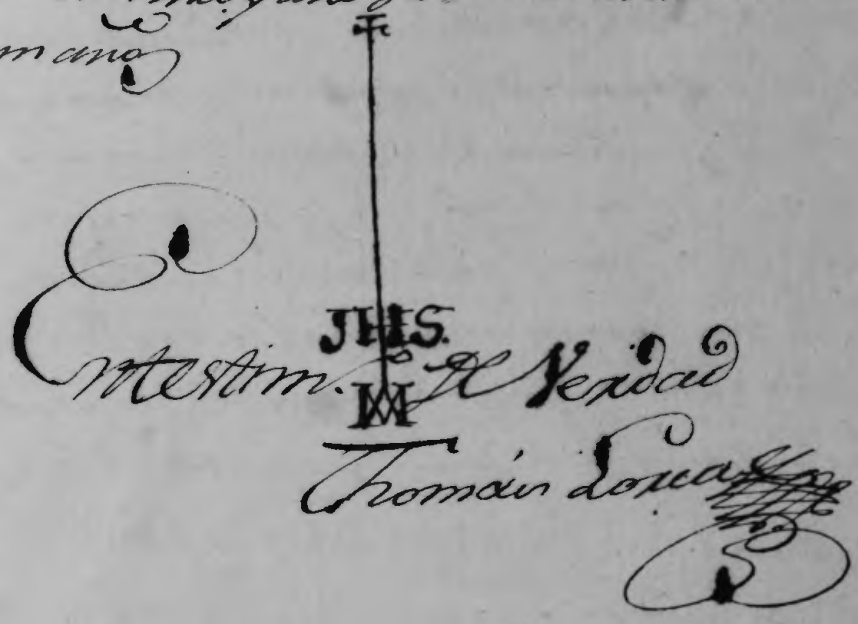 mano
JHS.
En testim. de Verdad
Thomás Lorca